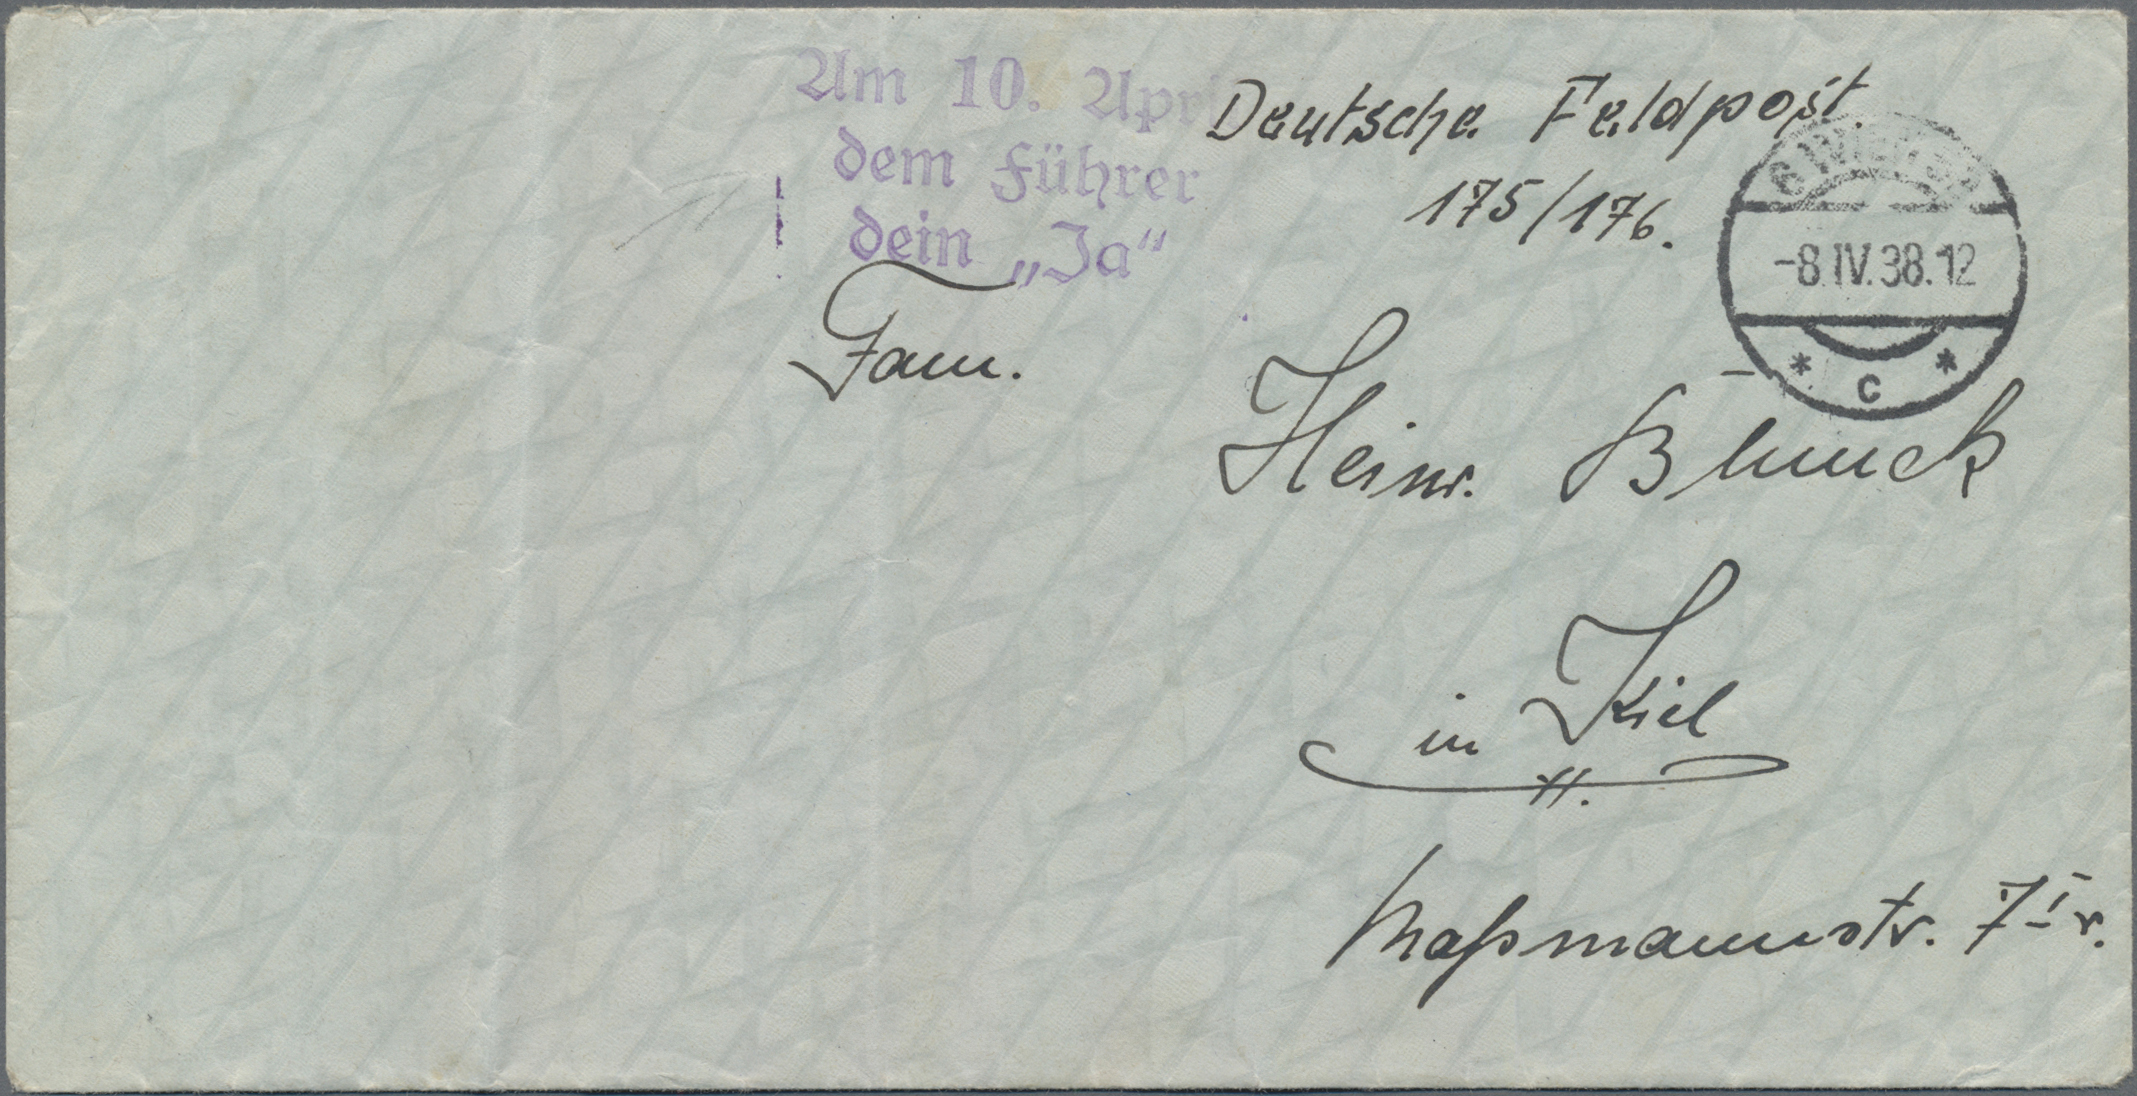 Am 10. Apr
dem Führer
dein „Ja“
Deutsche Feldpost.
175/176.
-8.IV.38.12
* c *
Fam.
Heinr. Blunck
in Kiel
Maßmannstr. 7 I r.